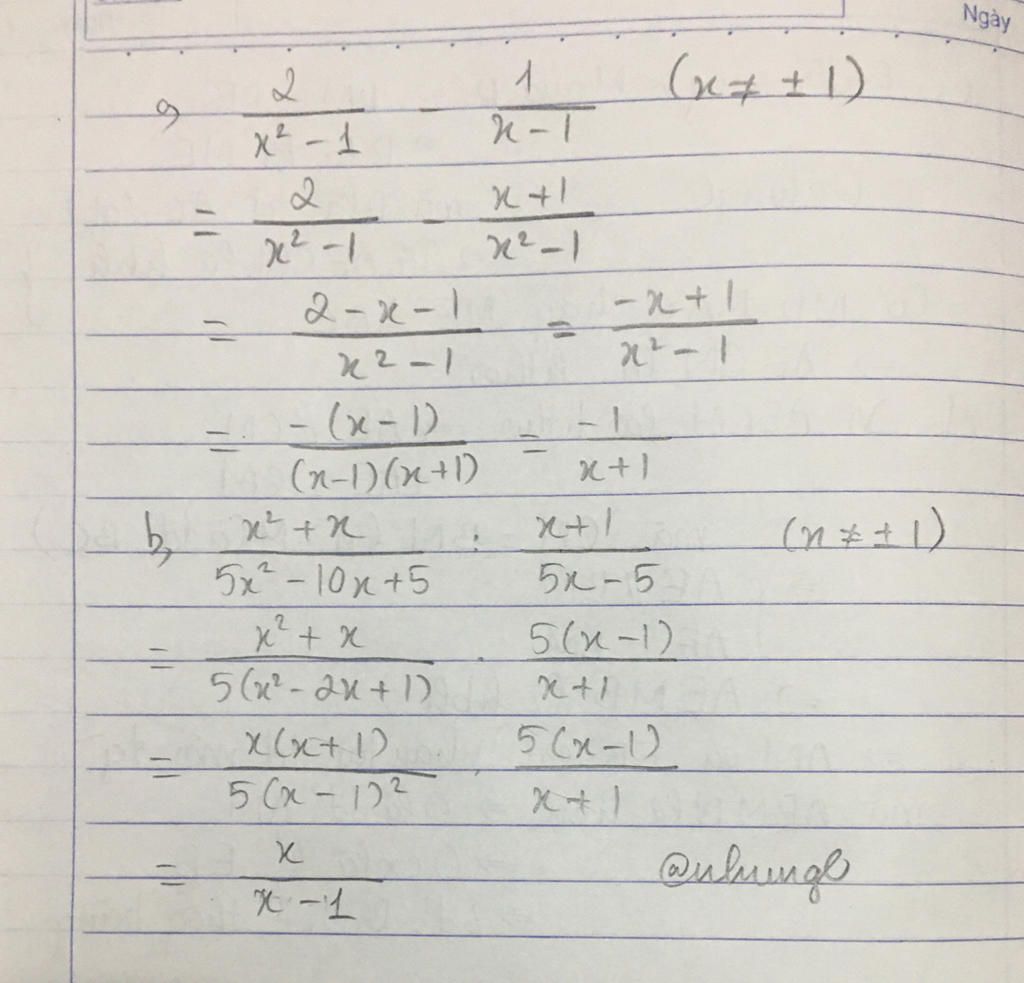 Ngày
a, \frac{2}{x² - 1} - \frac{1}{x - 1} (x ≠ ± 1)
= \frac{2}{x² - 1} - \frac{x + 1}{x² - 1}
= \frac{2 - x - 1}{x² - 1} = \frac{-x + 1}{x² - 1}
= \frac{-(x - 1)}{(x - 1)(x + 1)} = \frac{-1}{x + 1}
b, \frac{x² + x}{5x² - 10x + 5} : \frac{x + 1}{5x - 5} (x ≠ ± 1)
= \frac{x² + x}{5(x² - 2x + 1)} . \frac{5(x - 1)}{x + 1}
= \frac{x(x + 1)}{5(x - 1)²} . \frac{5(x - 1)}{x + 1}
= \frac{x}{x - 1}